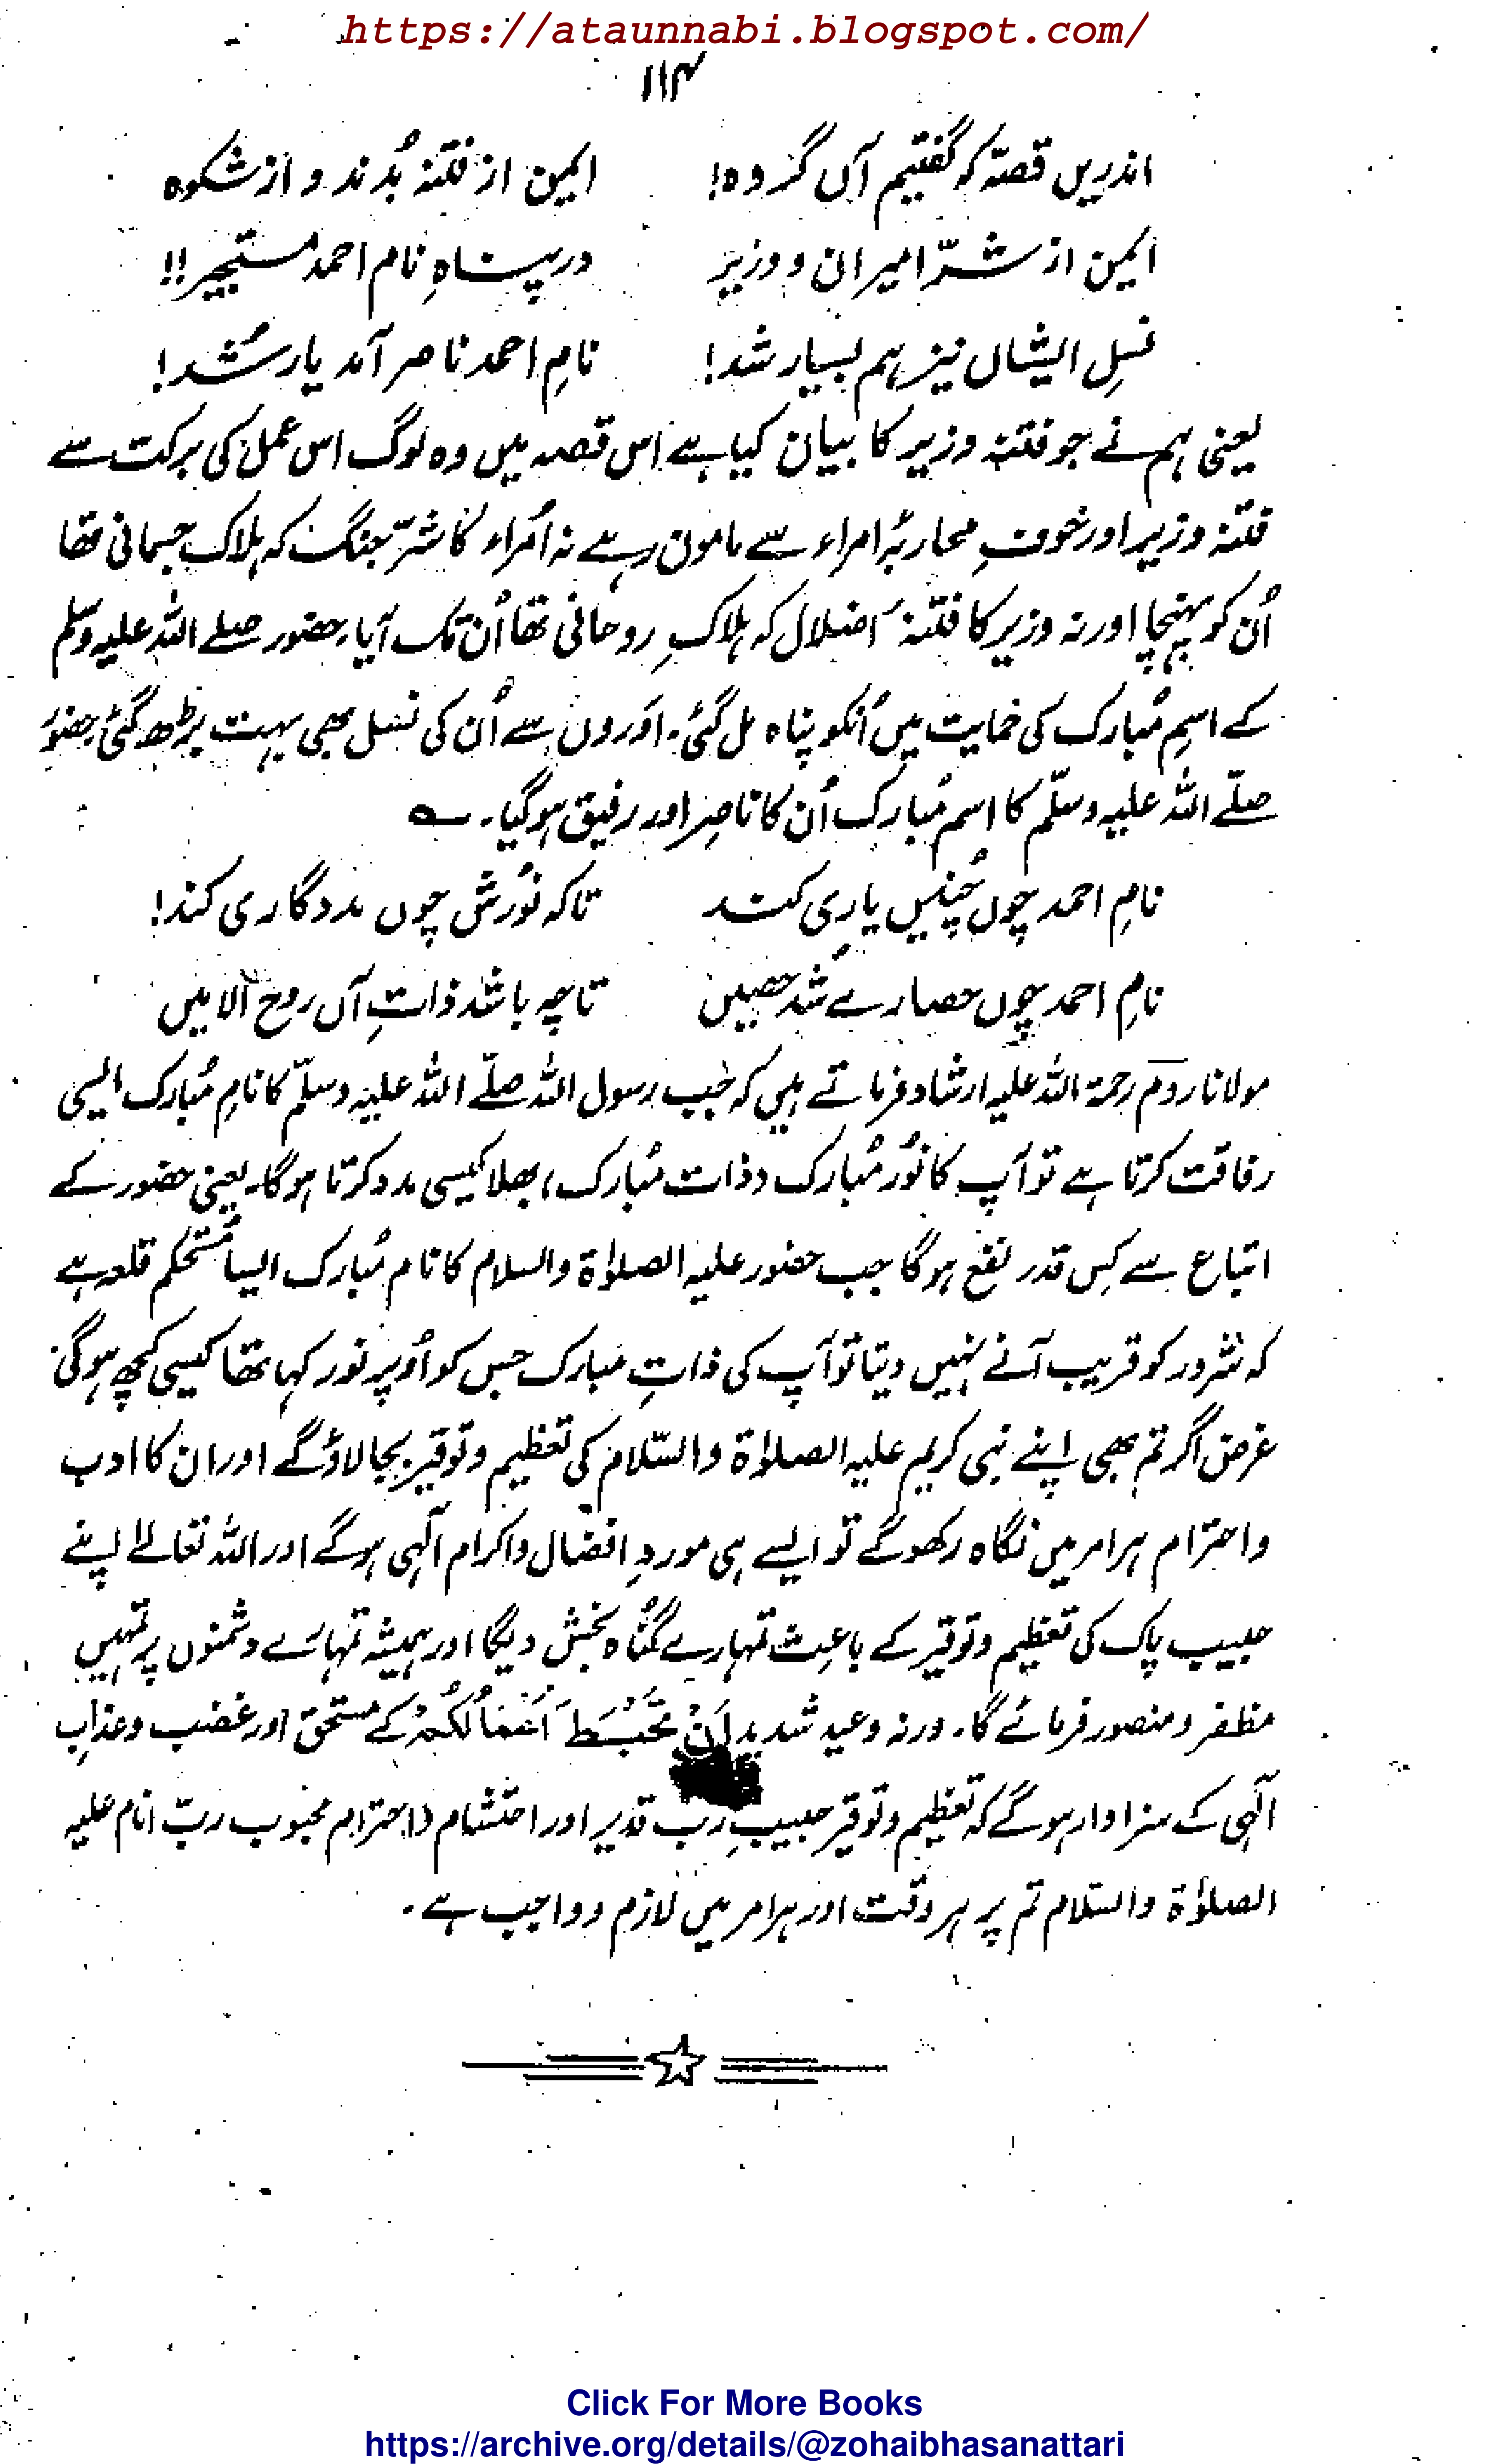 https://ataunnabi.blogspot.com/
۱۱۴
اندریں قصّہ کہ گفتیم آں گروہ! ایمن از فتنہ بُدند و از شکوہ
ایمن از شرّ امیران و وزیر در پناہِ نام احمد مستجیر!!
نسلِ ایشاں نیز ہم بسیار شد! نامِ احمد ناصر آمد یار شُد!
یعنی ہم نے جو فتنہ وزیر کا بیان کیا ہے اس قصہ میں وہ لوگ اس عمل کی برکت سے
فتنہ وزیر اور خوفِ محاربۂ امراء سے مامون رہے نہ اُمراء کا شرِّ جنگ کہ ہلاک جسمانی تھا
اُن کو پہنچا اور نہ وزیر کا فتنۂ اضلال کہ ہلاکِ روحانی تھا اُن تک آیا۔ حضور صلے اللہ علیہ وسلم
کے اسمِ مُبارک کی حمایت میں اُنکو پناہ مل گئی۔ اَوروں سے اُن کی نسل بھی بہت بڑھ گئی۔ حضور
صلّے اللہ علیہ وسلّم کا اسم مُبارک اُن کا ناصِر اور رفیق ہوگیا۔ ؎
نامِ احمد چوں چُنیں یاری کند تا کہ نُورش چوں مددگاری کند!
نامِ احمد چوں حصارے شُد حصیں تا چہ باشد ذاتِ آں روح الامیں
مولانا رومؒ رحمۃ اللہ علیہ ارشاد فرماتے ہیں کہ جب رسول اللہ صلّے اللہ علیہ وسلّم کا نامِ مُبارک ایسی
رفاقت کرتا ہے تو آپ کا نُور مُبارک (ذات مُبارک) بھلا کیسی مدد کرتا ہوگا۔ یعنی حضور کے
اتباع سے کِس قدر نفع ہوگا جب حضور علیہ الصلوٰۃ والسلام کا نام مُبارک ایسا مُستحکم قلعہ ہے
کہ شرور کو قریب آنے نہیں دیتا تو آپ کی ذاتِ مبارک جس کو اُوپر نور کہا تھا کیسی کچھ ہوگی۔
غرض اگر تم بھی اپنے نبی کریم علیہ الصلوٰۃ والسّلام کی تعظیم و توقیر بجا لاؤ گے اور ان کا ادب
و احترام ہر امر میں نگاہ رکھو گے تو ایسے ہی موردِ افضال و اکرام الٰہی ہوگے اور اللہ تعالےٰ اپنے
حبیب پاک کی تعظیم و توقیر کے باعث تمہارے گُناہ بخش دیگا اور ہمیشہ تمہارے دشمنوں پر تمہیں
مظفر و منصور فرمائے گا۔ ورنہ وعید شدید اَنْ تَحْبَطَ اَعْمَالُکُمْ کے مستحق اور غضب و عذابِ
الٰہی کے سزاوار ہوگے کہ تعظیم و توقیر حبیبِ رب قدیر اور احتشام و احترام محبوب ربّ انام علیہ
الصلوٰۃ والسّلام تم پر ہر وقت اور ہر امر میں لازم و واجب ہے۔
Click For More Books
https://archive.org/details/@zohaibhasanattari